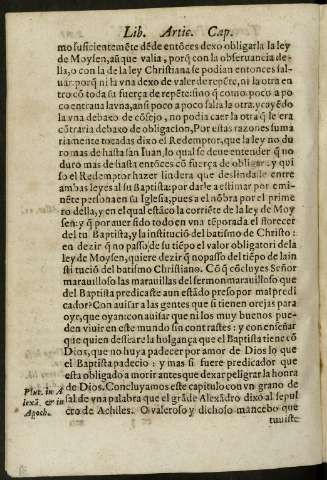 Lib. Artic. Cap.
mo suficientemẽte dẽde entõces dexo obligarla la ley
de Moysen, aũque valia, porq̃ con la obseruancia de-
lla, o con la de la ley Christiana se podian entonces sal-
uar: porq̃ ni la vna dexo de valer de repẽte, ni la otra en
tro cõ toda su fuerça de repẽte: sino q̃ como poco a po
co entraua la vna, ansi poco a poco salia la otra, y cayẽdo
la vna debaxo de cõsejo, no podia caer la otra q̃ le era
cõtraria debaxo de obligacion, Por estas razones suma
riamente tocadas dixo el Redemptor, que la ley no du
ro mas de hasta san Iuan, lo qual se deue entender q̃ no
duro mas de hasta entõces cõ fuerça de obligar: y qui
so el Redemptor hazer lindera que deslindasse entre
ambas leyes al su Baptista: por darle a estimar por emi
nẽte persona en su Iglesia, pues a el nõbra por el prime
ro della, y en el qual estãco la corriẽte de la ley de Moy
sen: y q̃ por auer sido todo en vna tẽporada el florecer
del su Baptista, y la institució del batismo de Christo:
en dezir q̃ no passo, de su tiẽpo el valor obligatori de la
ley de Moysen, quiere dezir q̃ no passo del tiẽpo de la in
stitució del batismo Christiano. Cõ q̃ cõcluyes Señor
marauilloso las marauillas del sermon marauilloso que
del Baptista predicaste aun estãdo preso por mal predi
cador: Con auisar a las gentes que si tienen orejas para
oyr, que oyan: con auisar que ni los muy buenos pue-
den viuir en este mundo sin contrastes: y con enseñar
que quien desseare la holgança que el Baptista tiene cõ
Dios, que no huya padecer por amor de Dios lo que
el Baptista padecio: y mas si fuere predicador que
esta obligado a morir antes que dexar peligrar la honra
de Dios. Concluyamos este capitulo con vn grano de
sal de vna palabra que el grãde Alexãdro dixo al sepul
cro de Achiles. O valeroso y dichoso mancebo que
tuuiste
Plut. in A
lexã. & in
Apoth.